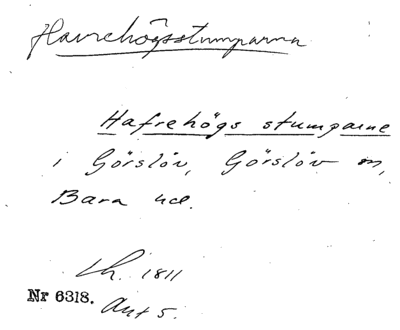 Havrehögsstumparna
Hafrehögs stumparne
i Görslöv, Görslöv sn,
Bara hd.
Lh. 1811
Nr 6318.
Akt 5.